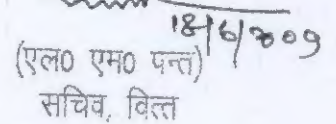 18/6/2009
(एल0 एम0 पन्त)
सचिव, वित्त